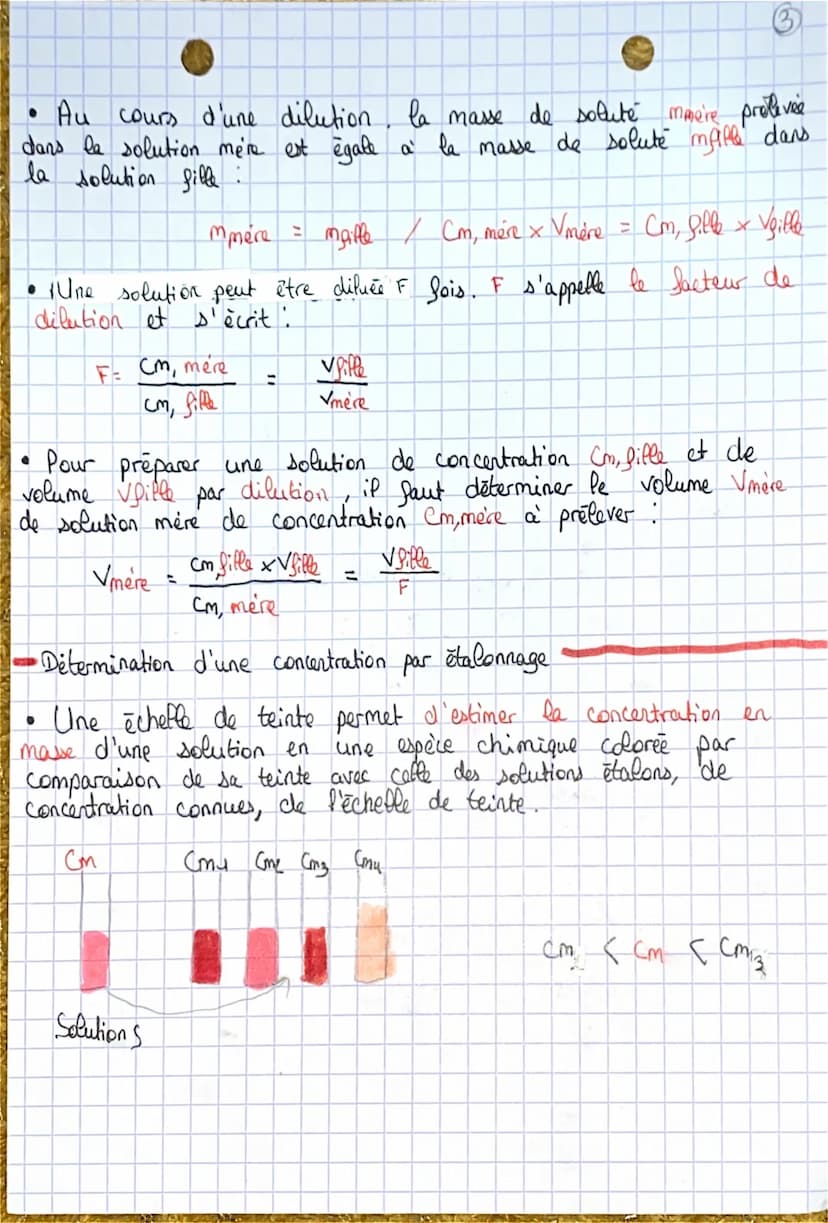 3
• Au cours d'une dilution, la masse de soluté mmère prélevée
dans la solution mère est égale à la masse de soluté mfille dans
la solution fille :
mmère = mfille / Cm, mère x Vmère = Cm, fille x Vfille
• Une solution peut être diluée F fois. F s'appelle le facteur de
dilution et s'écrit :
F= Cm, mère / Cm, fille = Vfille / Vmère
• Pour préparer une solution de concentration Cm, fille et de
volume Vfille par dilution, il faut déterminer le volume Vmère
de solution mère de concentration Cm, mère à prélever :
Vmère = Cm fille x Vfille / Cm, mère = Vfille / F
Détermination d'une concentration par étalonnage
• Une échelle de teinte permet d'estimer la concentration en
masse d'une solution en une espèce chimique colorée par
comparaison de sa teinte avec celle des solutions étalons, de
concentration connues, de l'échelle de teinte.
Cm Cm1 Cm2 Cm3 Cm4
Cm2 < Cm < Cm3
Solution S